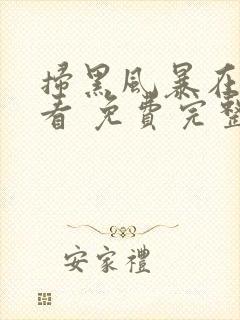 掃黑風暴在
看 免費完整
安家禮